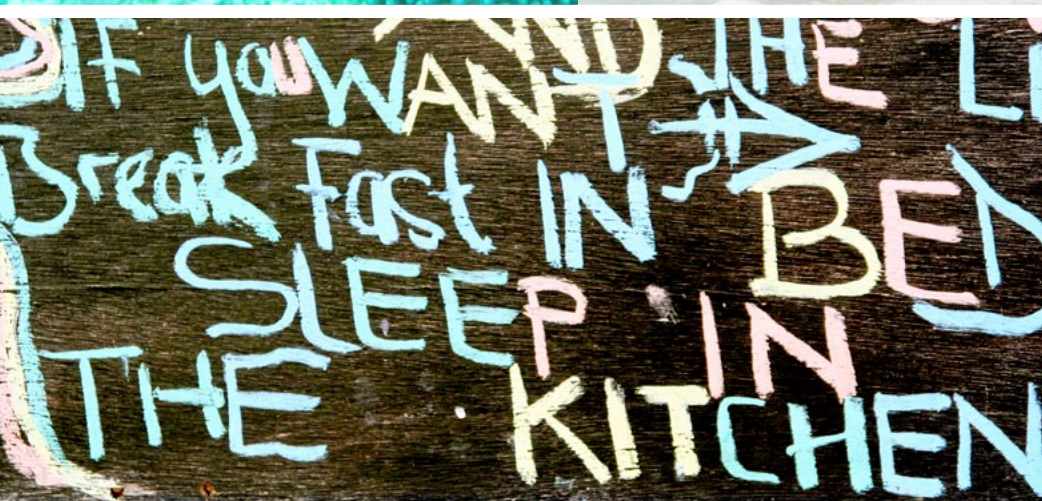 IF you WANT THE
Break Fast IN BED
SLEEP IN
THE KITCHEN